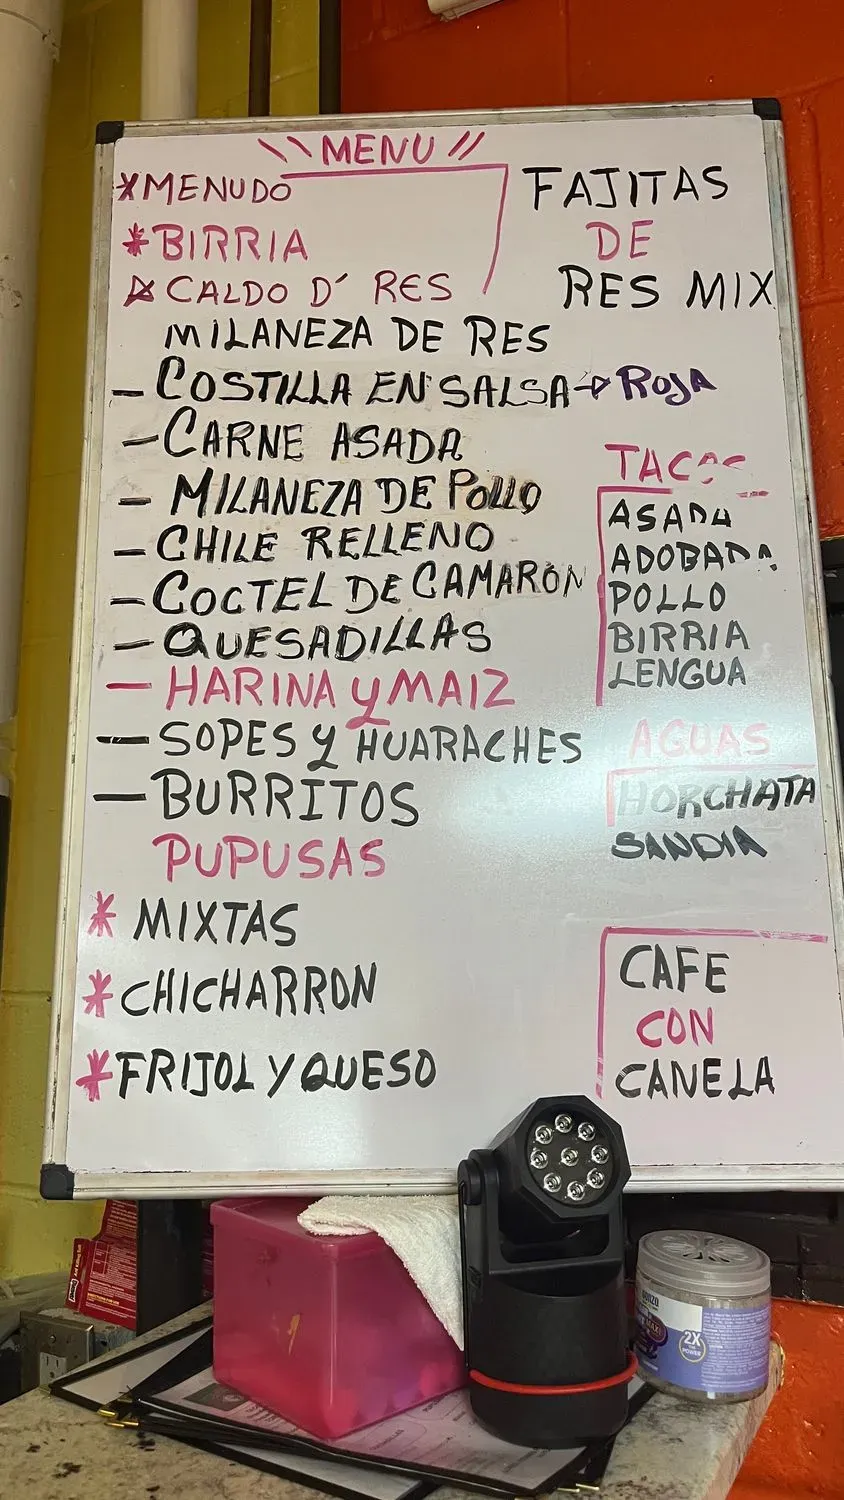 MENU
*MENUDO
*BIRRIA
CALDO D' RES
MILANEZA DE RES
- COSTILLA EN SALSA → ROJA
- CARNE ASADA
- MILANEZA DE POLLO
- CHILE RELLENO
- COCTEL DE CAMARON
- QUESADILLAS
- HARINA Y MAIZ
- SOPES Y HUARACHES
- BURRITOS
PUPUSAS
* MIXTAS
* CHICHARRON
* FRIJOL Y QUESO
FAJITAS
DE
RES MIX
TACOS
ASADA
ADOBADA
POLLO
BIRRIA
LENGUA
AGUAS
HORCHATA
SANDIA
CAFE
CON
CANELA
2X
POWER